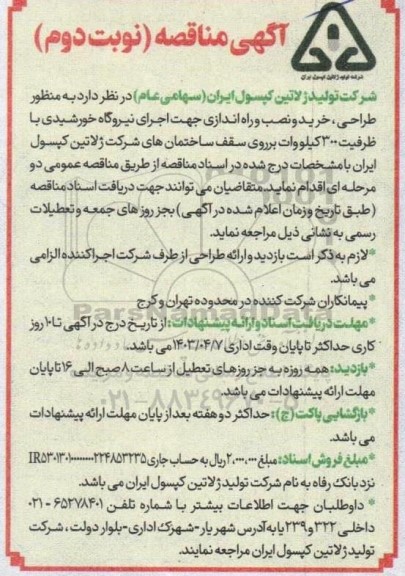 آگهی مناقصه (نوبت دوم)
شرکت تولید ژلاتین کپسول ایران
شرکت تولید ژلاتین کپسول ایران (سهامی عام) در نظر دارد به منظور
طراحی، خرید و نصب و راه اندازی جهت اجرای نیروگاه خورشیدی با
ظرفیت ۳۰۰ کیلو وات بر روی سقف ساختمان های شرکت ژلاتین کپسول
ایران با مشخصات درج شده در اسناد مناقصه از طریق مناقصه عمومی دو
مرحله ای اقدام نماید. متقاضیان می توانند جهت دریافت اسناد مناقصه
(طبق تاریخ و زمان اعلام شده در آگهی) بجز روز های جمعه و تعطیلات
رسمی به نشانی ذیل مراجعه نماید.
* لازم به ذکر است بازدید و ارائه طراحی از طرف شرکت اجرا کننده الزامی
می باشد.
* پیمانکاران شرکت کننده در محدوده تهران و کرج
* مهلت دریافت اسناد و ارائه پیشنهادات: از تاریخ درج در آگهی تا ۱۰ روز
کاری حداکثر تا پایان وقت اداری ۱۴۰۳/۰۴/۷ می باشد.
* بازدید: همه روزه به جز روز های تعطیل از ساعت ۸ صبح الی ۱۶ تا پایان
مهلت ارائه پیشنهادات می باشد.
* بازگشایی پاکت (ج): حداکثر دو هفته بعد از پایان مهلت ارائه پیشنهادات
می باشد.
* مبلغ فروش اسناد: مبلغ ۲,۰۰۰,۰۰۰ ریال به حساب جاری
نزد بانک رفاه به نام شرکت تولید ژلاتین کپسول ایران می باشد.
* داوطلبان جهت اطلاعات بیشتر با شماره تلفن ۶۵۲۷۸۴۰۱-۰۲۱
داخلی ۳۲۲ و ۲۳۹ یا به آدرس شهریار-شهرک اداری-بلوار دولت، شرکت
تولید ژلاتین کپسول ایران مراجعه نمایند.
ParsNamadData